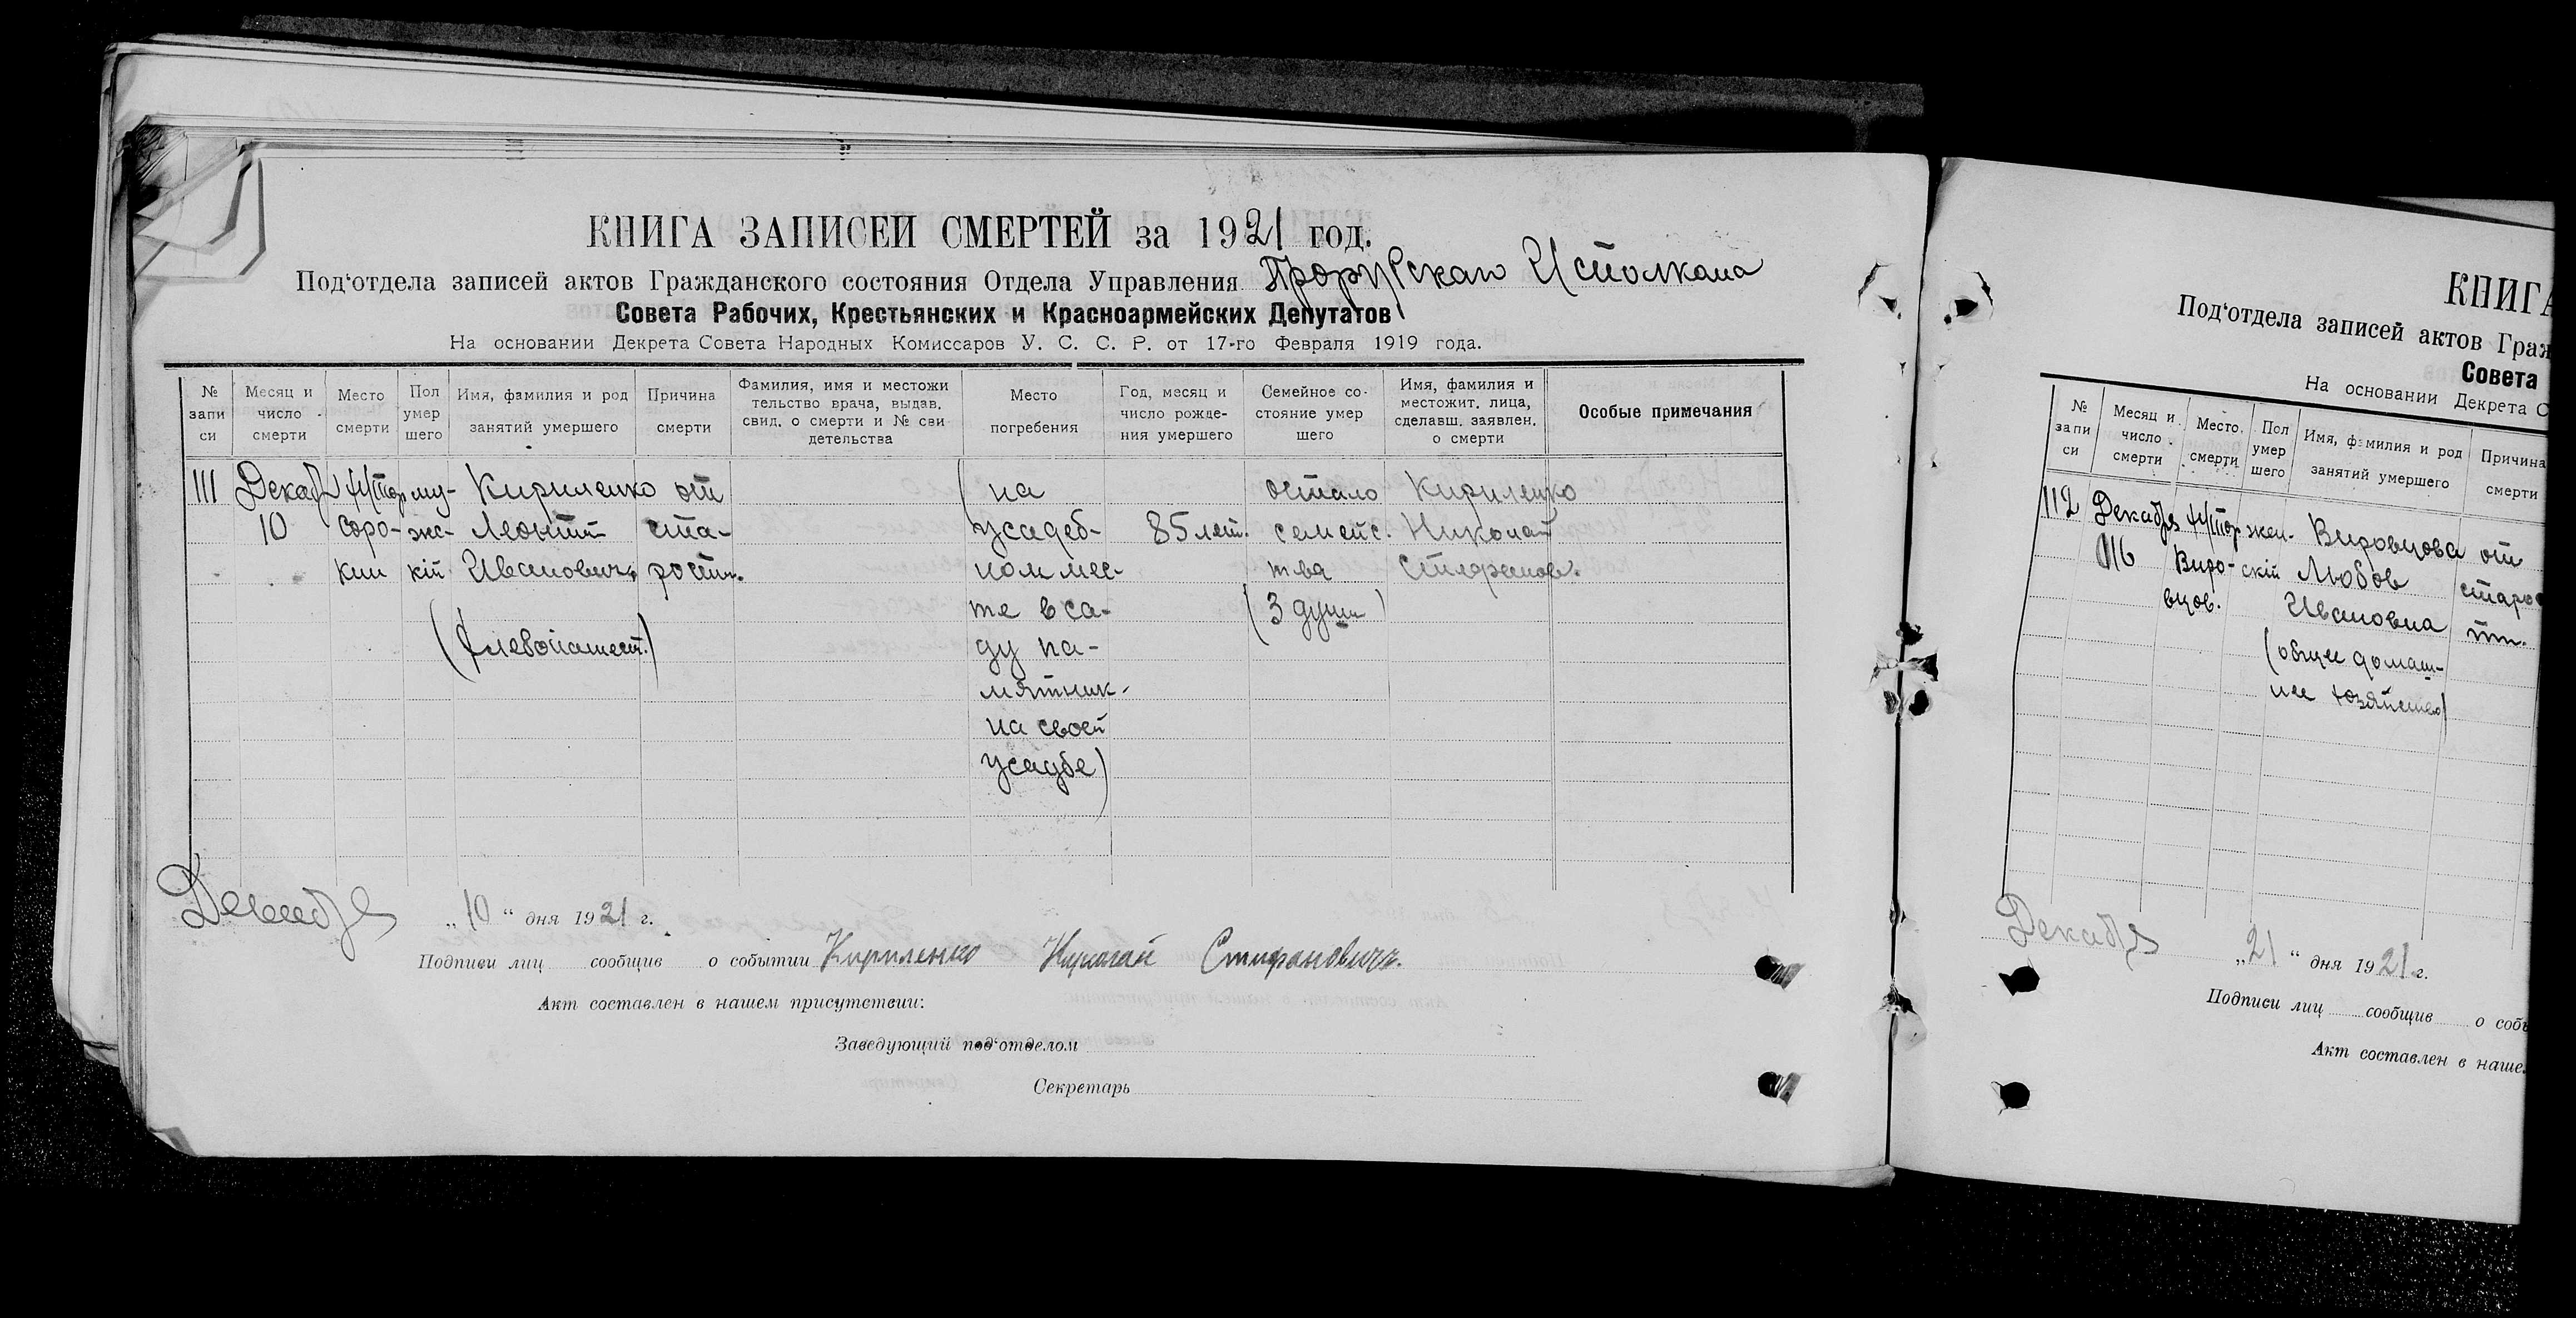 КНИГА ЗАПИСЕЙ СМЕРТЕЙ за 1921 год.
Под‘отдела записей актов Гражданского состояния Отдела Управления Исполкома
Совета Рабочих, Крестьянских и Красноармейских Депутатов
На основании Декрета Совета Народных Комиссаров У. С. С. Р. от 17-го Февраля 1919 года.
№ запи си
Месяц и число смерти
Место смерти
Пол умер шего
Имя, фамилия и род занятий умершего
Причина смерти
Фамилия, имя и местожи тельство врача, выдав. свид. о смерти и № сви детельства
Место погребения
Год, месяц и число рожде- ния умершего
Семейное со- стояние умер шего
Имя, фамилия и местожит. лица, сделавш. заявлен. о смерти
Особые примечания
111 Декабр Хутор му- Кириленко от (на остало Кириленко
10 Соро- жс- Леонтий ста- усадеб- 85 лет. семейс. Николай
кин кій Ивановичъ рости. ном мес- тва Стефанов.
те в са- (3 души)
(Хлебопашест.) ду па-
мятник-
на своей
усадбе)
Декабря „10“ дня 1921 г.
Подписи лиц сообщив о событии Кириленко Николай Стифановичъ.
Акт составлен в нашем присутствии:
Заведующий под‘отделом
Секретарь
КНИГА
Под‘отдела записей актов Граж
Совета
На основании Декрета С
№ запи си
Месяц и число смерти
Место смерти
Пол умер шего
Имя, фамилия и род занятий умершего
Причина смерти
112 Декабря Хутор жен- Вировцова от
16 Виро- скій Любов старос
вцов. Ивановна ти.
(общее домаш-
нее хозяйство)
Декабря „21“ дня 1921 г.
Подписи лиц сообщив о собы
Акт составлен в наше